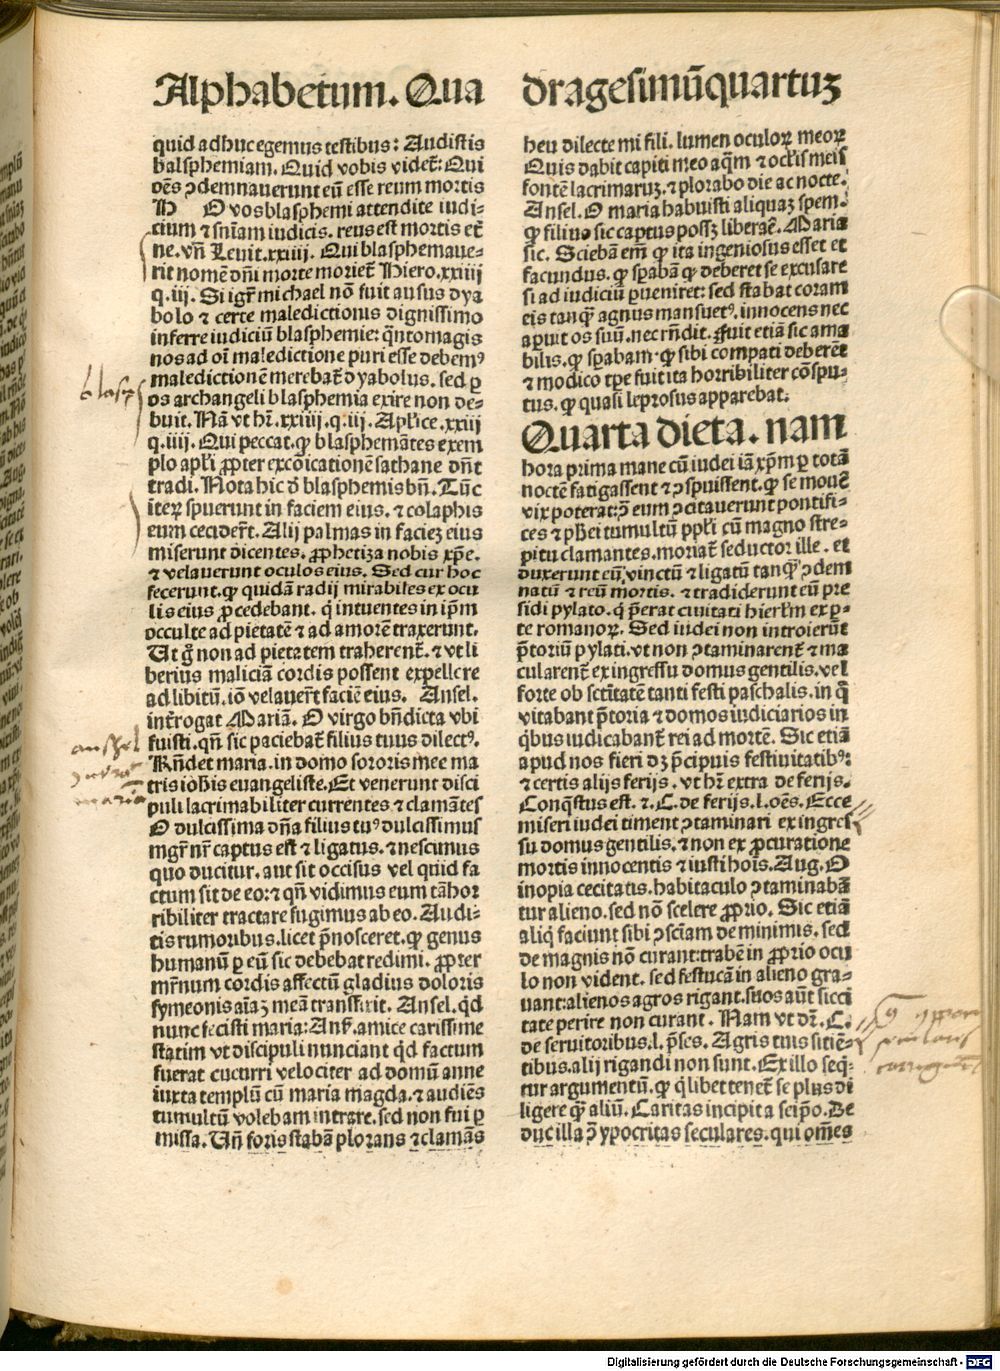 Alphabetum. Qua
dragesimūquartuꝫ
quid adhuc egemus testibus: Audistis
balsphemiam. Quid vobis videt̄: Qui
oēs ꝯdemnauerunt eū esse reum mortis
H O vos blasphemi attendite iudi⸗
cium ⁊ sniam iudicis. reus est mortis et̄
ne. vn̄ Leuit. xxiiij. Qui blasphemaue⸗
rit nomē dn̄i morte moriet̄ Hiero. xxiiij
q. iij. Si igr̄ michael nō fuit ausus dya
bolo ⁊ certe maledictionis dignissimo
inferre iudiciū blasphemie: qn̄tomagis
nos ad oī maledictione puri esse debemꝰ
maledictionē merebat̄ dyabolus. sed ꝑ
os archangeli blasphemia exire non de⸗
buit. Nā vt hr̄. xxiiij. q. iij. Apl̄ice. xxiij
q. iiij. Qui peccat. ꝙ blasphemātes exem
plo apl̄i ꝓpter excōicationē sathane dn̄t
tradi. Nota hic ō blasphemis bn̄. Tūc
iteꝝ spuerunt in faciem eius. ⁊ colaphis
eum ceciderūt. Alij palmas in facieꝫ eius
miserunt dicentes. ꝓphetiza nobis xp̄e.
⁊ velauerunt oculos eius. Sed cur hoc
fecerunt. ꝙ quidā radij mirabiles ex ocu
lis eius ꝓcedebant. q̄ intuentes in ip̄m
occulte ad pietatē ⁊ ad amorē traxerunt.
Ut g̊ non ad pietatem traherent̄. ⁊ vt li
berius maliciam cordis possent expellere
ad libitū. iō velauer̄t faciē eius. Ansel.
int̄rogat Mariā. O virgo bn̄dicta vbi
fuisti. qn̄ sic paciebat̄ filius tuus dilectꝰ.
Rn̄det maria. in domo sororis mee ma
tris iohīs euangeliste. Et venerunt disci
puli lacrimabiliter currentes ⁊ clamātes
O dulcissima dn̄a filius tuꝰ dulcissimus
mgr̄ nr̄ captus est ⁊ ligatus. ⁊ nescimus
quo ducitur. aut sit occisus vel quid fa
ctum sit de eo: ⁊ qn̄ vidimus eum tā hor
ribiliter tractare fugimus ab eo. Audi⸗
tis rumoribus. licet p̄nosceret. ꝙ genus
humanū ꝑ eū sic debebat redimi. ꝓpter
mr̄num cordis affectū gladius doloris
symeonis aīaꝫ meā transfixit. Ansel. qd̄
nunc fecisti maria: Anẜ. amice carissime
statim vt discipuli nunciant qd̄ factum
fuerat cucurri velociter ad domū anne
iuxta templū cū maria magda. ⁊ audiēs
tumultū volebam intrare. sed non fui ꝑ
missa. Un̄ foris stabā plorans ⁊ clamās
heu dilecte mi fili. lumen oculoꝝ meoꝝ
Quis dabit capiti meo aqm̄ ⁊ ocl̄is meis
fontē lacrimaruꝫ. ⁊ plorabo die ac nocte.
Ansel. O maria habuisti aliquaꝫ spem.
ꝙ filiꝰ sic captus possꝫ liberaꝛē. Maria
sic. Sciebā em̄ ꝙ ita ingeniosus esset et
facundus. ꝙ spabā ꝙ deberet se excusare
si ad iudiciū ꝑueniret: sed stabat coram
eis tanqꝫ agnus mansuetꝰ. innocens nec
aperuit os suū. nec rn̄dit. Fuit etiā sic ama
bilis. ꝙ spabam ꝙ sibi compati deberēt
⁊ modico tp̄e fuit ita horribiliter cōspu⸗
tus. ꝙ quasi leprosus apparebat.
Quarta dieta. nam
hora prima mane cū iudei iā xp̄m ꝑ totā
noctē fatigassent ⁊ ꝯspuissent. ꝙ se mouē
vix poterat: ꝓ eum ꝯcitauerunt pontifi⸗
ces ⁊ pb̄ei tumultū ppl̄i cū magno stre⸗
pitu clamantes. moriat̄ seductor ille. et
duxerunt eū, vinctū ⁊ ligatū tanqꝫ ꝯdem
natū ⁊ reū mortis. ⁊ tradiderunt eū pre
sidi pylato. q̄ p̄erat ciuitati hierl̄m ex ꝑ⸗
te romanoꝝ. Sed iudei non introierūt
p̄toriū pylati. vt non ꝯtaminarent̄ ⁊ ma
cularent̄ ex ingressu domus gentilis. vel
forte ob sctītatē tanti festi paschalis. in q̄
vitabant p̄toria ⁊ domos iudiciarios in
qͥbus iudicabant̄ rei ad mortē. Sic etiā
apud nos fieri dꝫ p̄cipuis festiuitatibꝰ:
⁊ certis alijs ferijs. vt hr̄ extra de ferijs.
Conqͥstus est. ⁊. C. de ferijs. l. oēs. Ecce
miseri iudei timent ꝯtaminari ex ingres
su domus gentilis. ⁊ non ex ꝓcuratione
mortis innocentis ⁊ iusti hoīs. Aug. O
inopia cecitatis. habitaculo ꝯtaminabā
tur alieno. sed nō scelere ꝓprio. Sic etiā
aliqͥ faciunt sibi ꝯsciam de minimis. sed
de magnis nō curant: trabē in ꝓprio ocu
lo non vident. sed festucā in alieno gra⸗
uant: alienos agros rigant. suos aūt sicci
tate perire non curant. Nam vt dr̄. C.
de seruitoribus. l. p̄ses. Agris tuis sitiē⸗
tibus. alij rigandi non sunt. Ex illo seq̄⸗
tur argumentū. ꝙ qͥlibet tenet̄ se plus di
ligere qꝫ aliū. Caritas incipit a seip̄o. De
duc illa ꝯ̄ ypocritas seculares. qui om̄es
blasp
anshel
maria
Digitalisierung gefördert durch die Deutsche Forschungsgemeinschaft - DFG